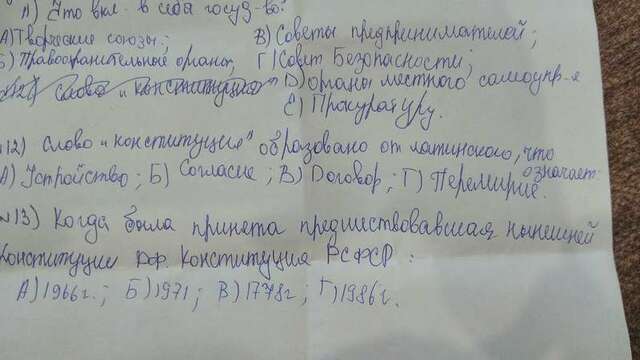 11) Что вкл. в себя госуд-во?
А) Творческие союзы; В) Советы предпринимателей;
Б) Правоохранительные органы; Г) Совет Безопасности;
12) Слово "конституция" Д) Органы местного самоупр-я
Е) Прокуратуру.
12) Слово "конституция" образовано от латинского, что означает:
А) Устройство; Б) Согласие; В) Договор; Г) Перемирие.
№13) Когда была принета предшествовавшая нынешней
Конституции РФ. Конституция РСФСР:
А) 1966г.; Б) 1971; В) 1778г; Г) 1986г.